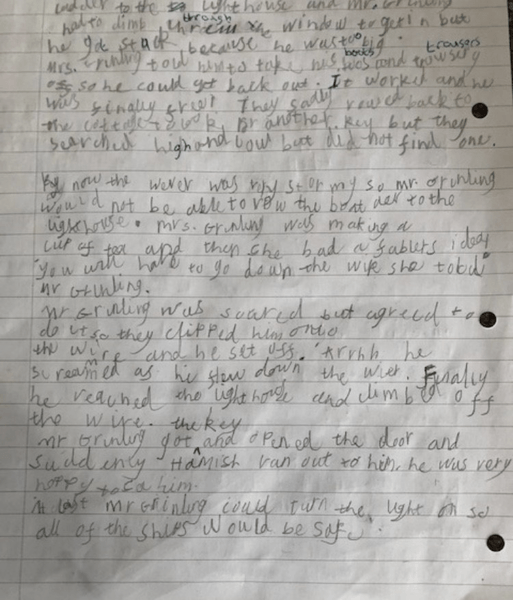 ladder to the lighthouse and Mr. Grinling
had to climb through the window to get in but
he got stuck because he was too big.
Mrs. Grinling told him to take his boots and trousers
off so he could get back out. It worked and he
was finally free! They sadly rowed back to
the cottage to look for another key but they
searched high and low but did not find one.
By now the wever was viry stormy so mr. Grinling
would not be able to row the boat to the
lighthouse. mrs. Grinling was making a
cup of tea and then she had a fablers idea
"you will have to go down the wire she told
Mr Grinling.
Mr Grinling was scared but agreed to
do it so they clipped him onto
the wire and he set off. "Arrhh he
screamed as he flew down the wier. Finally
he reached the lighthouse and climbed off
the wire.
mr Grinling got the key and opened the door and
suddenly Hamish ran out to him. he was very
happy to see him.
At last mr Grinling could turn the light on so
all of the ships would be safe.